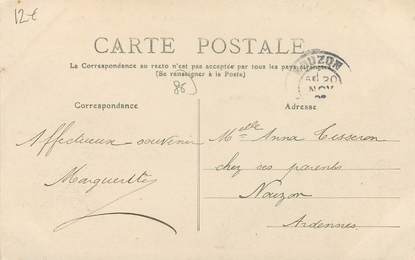 12€
CARTE POSTALE
La Correspondance au recto n'est pas acceptée par tous les pays étrangers
(Se renseigner à la Poste)
NOUZON
20
NOV
86)
Correspondance
Adresse
Affectueux souvenir
Marguerite
Melle Anna Tisseron
chez ses parents
Nouzon
Ardennes